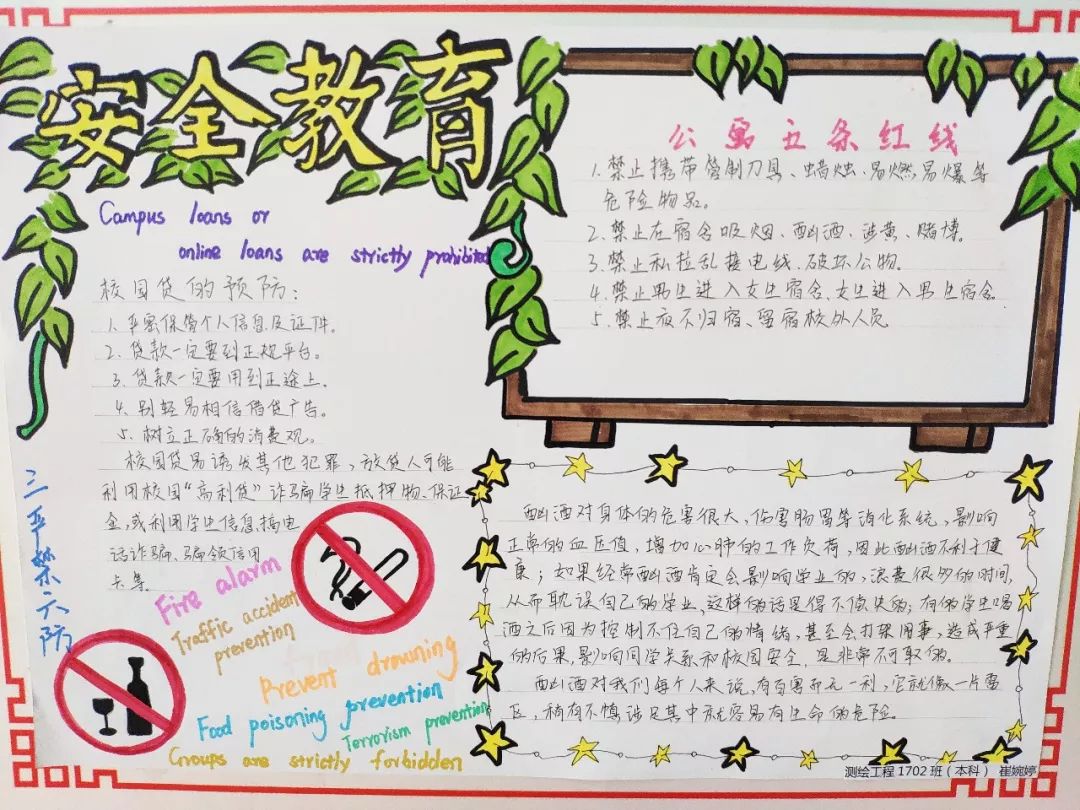 安全教育
Campus loans or
online loans are strictly prohibited
校园贷的预防：
1. 严密保管个人信息及证件。
2. 贷款一定要到正规平台。
3. 贷款一定要用到正途上。
4. 别轻易相信借贷广告。
5. 树立正确的消费观。
校园贷易诱发其他犯罪，放贷人可能
利用校园“高利贷”诈骗学生抵押物、保证
金，或利用学生信息搞电
话诈骗、骗领信用
卡等。
三严禁六防
Fire alarm
Traffic accident
prevention
Prevent drowning
Food poisoning prevention
Terrorism prevention
Groups are strictly forbidden
公寓五条红线
1. 禁止携带管制刀具、蜡烛、易燃，易爆等
危险物品。
2. 禁止在宿舍吸烟、酗酒、涉黄、赌博。
3. 禁止私拉乱接电线、破坏公物。
4. 禁止男生进入女生宿舍、女生进入男生宿舍
5. 禁止夜不归宿、留宿校外人员
酗酒对身体的危害很大，伤害肠胃等消化系统，影响
正常的血压值，增加心肺的工作负荷，因此酗酒不利于健
康；如果经常酗酒肯定会影响学业的，浪费很多的时间，
从而耽误自己的学业、这样的话是得不偿失的；有的学生喝
酒之后因为控制不住自己的情绪，甚至会打架闹事，造成严重
的后果，影响同学关系和校园安全，是非常不可取的。
酗酒对我们每个人来说，有百害而无一利，它就像一片雷
区，稍有不慎涉足其中就容易有生命的危险。
测绘工程1702班（本科） 崔婉婷